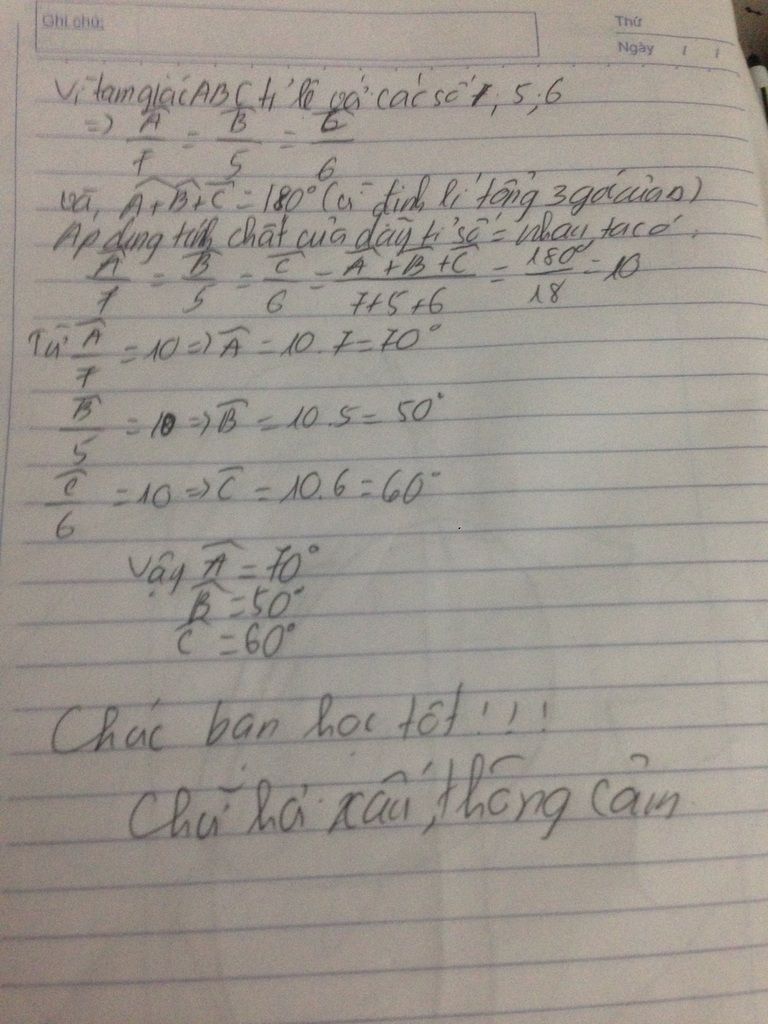 Ghi chú:
Thứ
Ngày / /
Vì tam giác ABC tỉ lệ với các số 7; 5; 6
=> Â/7 = B̂/5 = 6̂/6
và, Â+B̂+Ĉ = 180° (định lí tổng 3 góc của Δ)
Áp dụng tính chất của dãy tỉ số = nhau, ta có:
Â/7 = B̂/5 = Ĉ/6 = Â+B̂+Ĉ/7+5+6 = 180°/18 = 10
Từ Â/7 = 10 => Â = 10.7 = 70°
B̂/5 = 10 => B̂ = 10.5 = 50°
Ĉ/6 = 10 => Ĉ = 10.6 = 60°
Vậy Â = 70°
B̂ = 50°
Ĉ = 60°
Chúc bạn học tốt!!!
Chữ hơi xấu, thông cảm